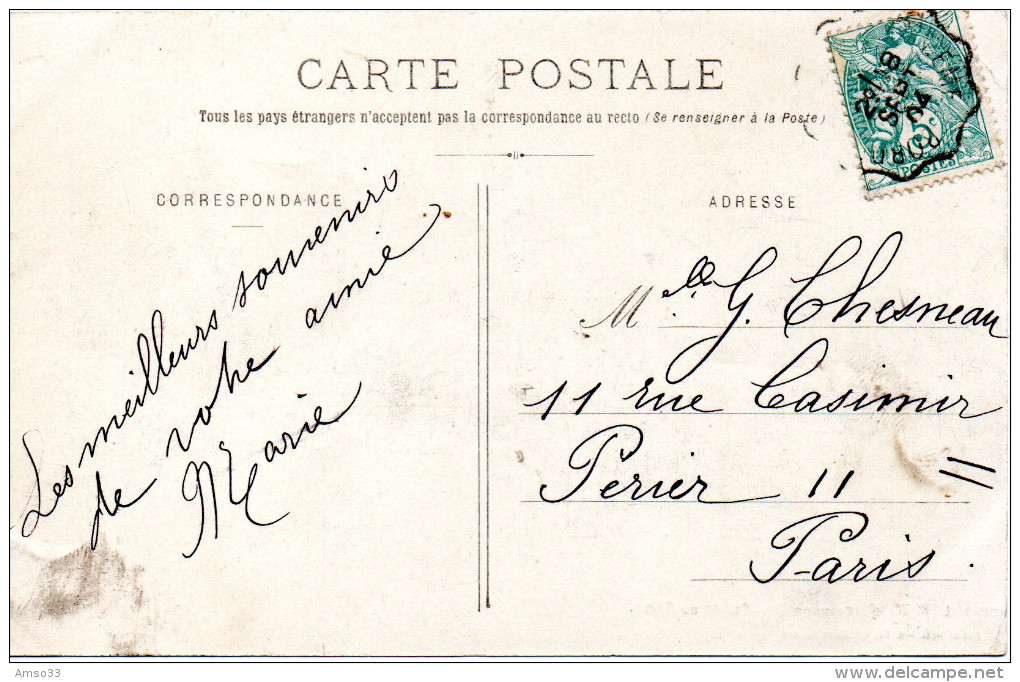 CARTE POSTALE
Tous les pays étrangers n'acceptent pas la correspondance au recto (Se renseigner à la Poste)
CORRESPONDANCE
Les meilleurs souvenirs
de votre amie
Marie
ADRESSE
Mlle. G. Chesneau
11 rue Casimir
Périer 11
Paris.
5c
POSTES
Amso33
www.delcampe.net